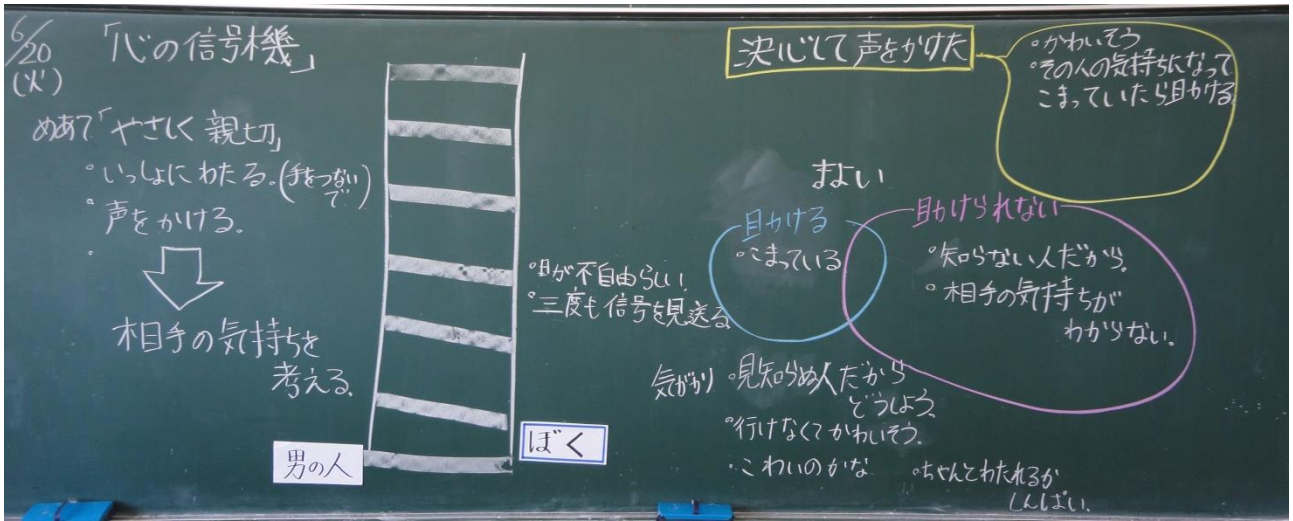 6/20
(火)
「心の信号機」
めあて「やさしく親切」
・いっしょにわたる。(手をつないで)
・声をかける。
・
相手の気持ちを
考える。
男の人
ぼく
・目が不自由らしい。
・三度も信号を見送る
決心して声をかけた
・かわいそう
・その人の気持ちになって
こまっていたら助ける
まよい
助ける
・こまっている
助けられない
・知らない人だから。
・相手の気持ちが
わからない。
気がかり
・見知らぬ人だから
どうしよう。
・行けなくてかわいそう。
・こわいのかな
・ちゃんとわたれるか
しんぱい。